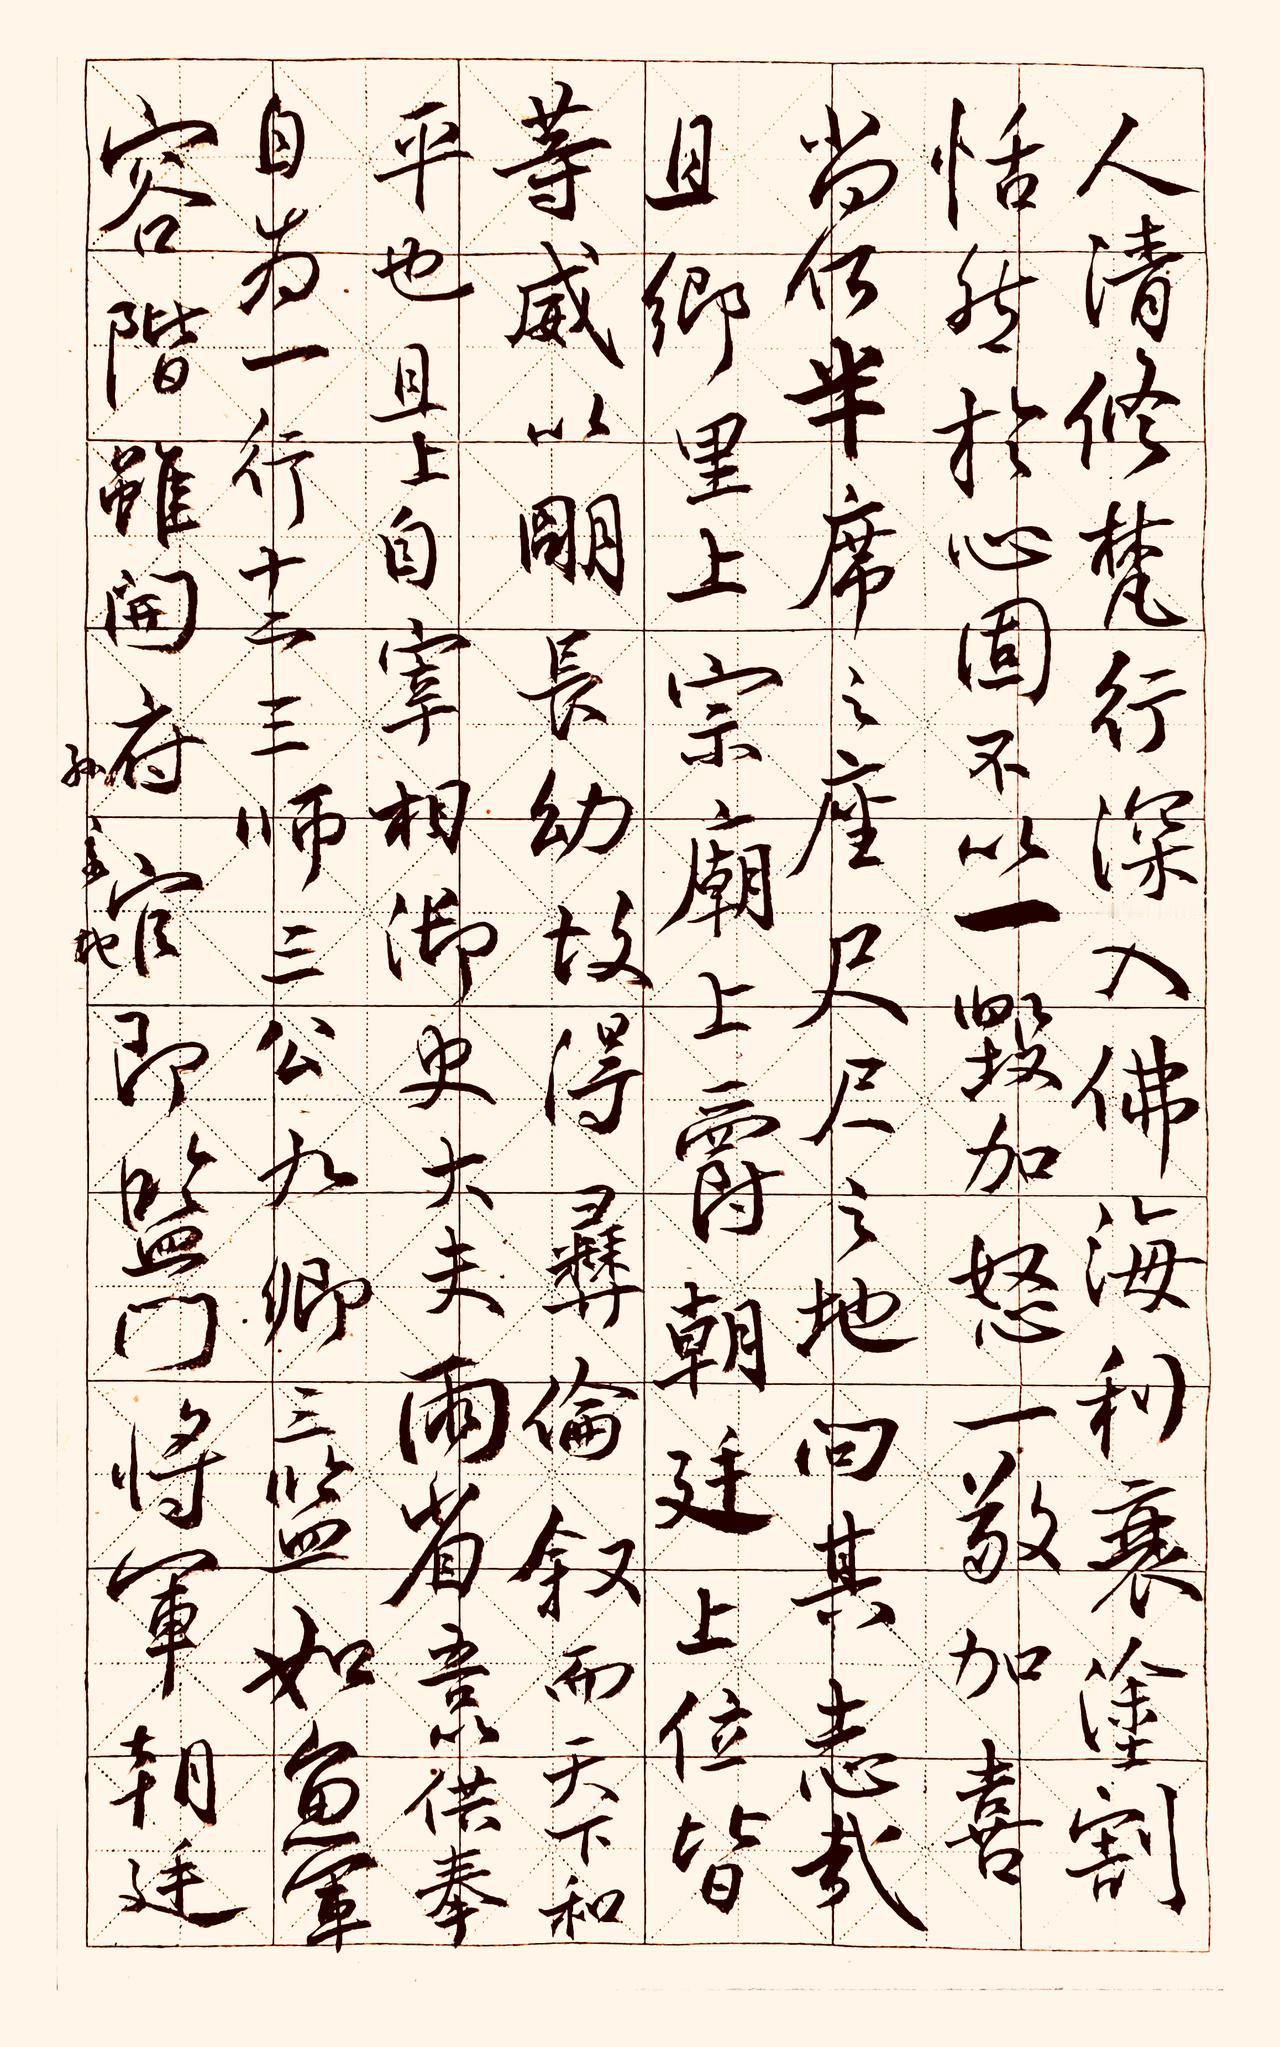 人清修梵行深入佛海利衰塗割
恬然於心固不以一毀加怒一敬加喜
尚何半席之座咫尺之地汩其志哉
且鄉里上宗廟上爵朝廷上位皆
等威以明長幼故得彝倫叙而天下和
平也且上自宰相御史大夫兩省五品以供奉
自為一行十二三師三公九卿三監如魚軍
容階雖開府官即監門將軍朝廷